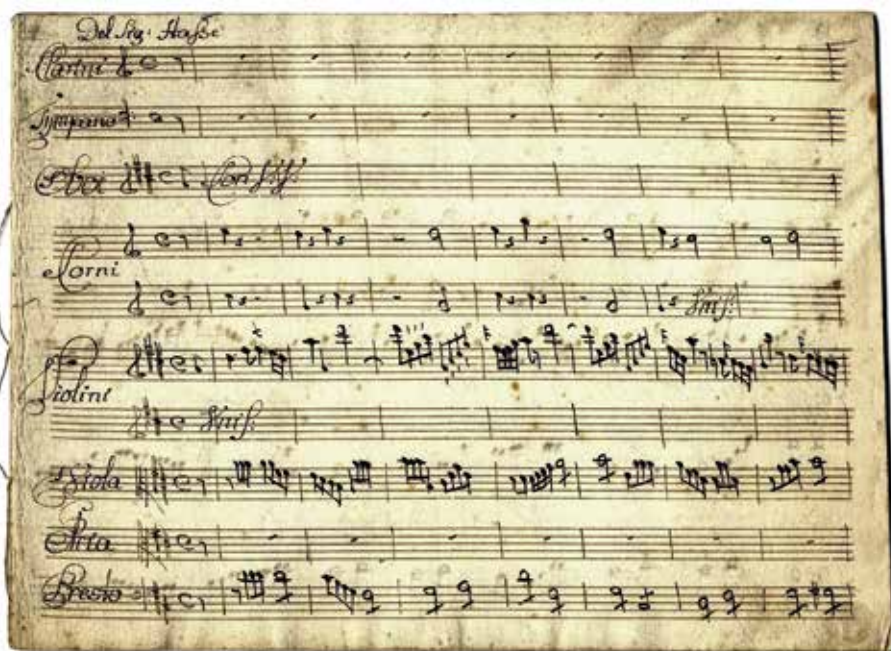 Del Sig: Hasse
Clarini
Tympano
Oboi Con VV:
Corni
Unis:
Violini
Unis:
Viola
Aria
Presto